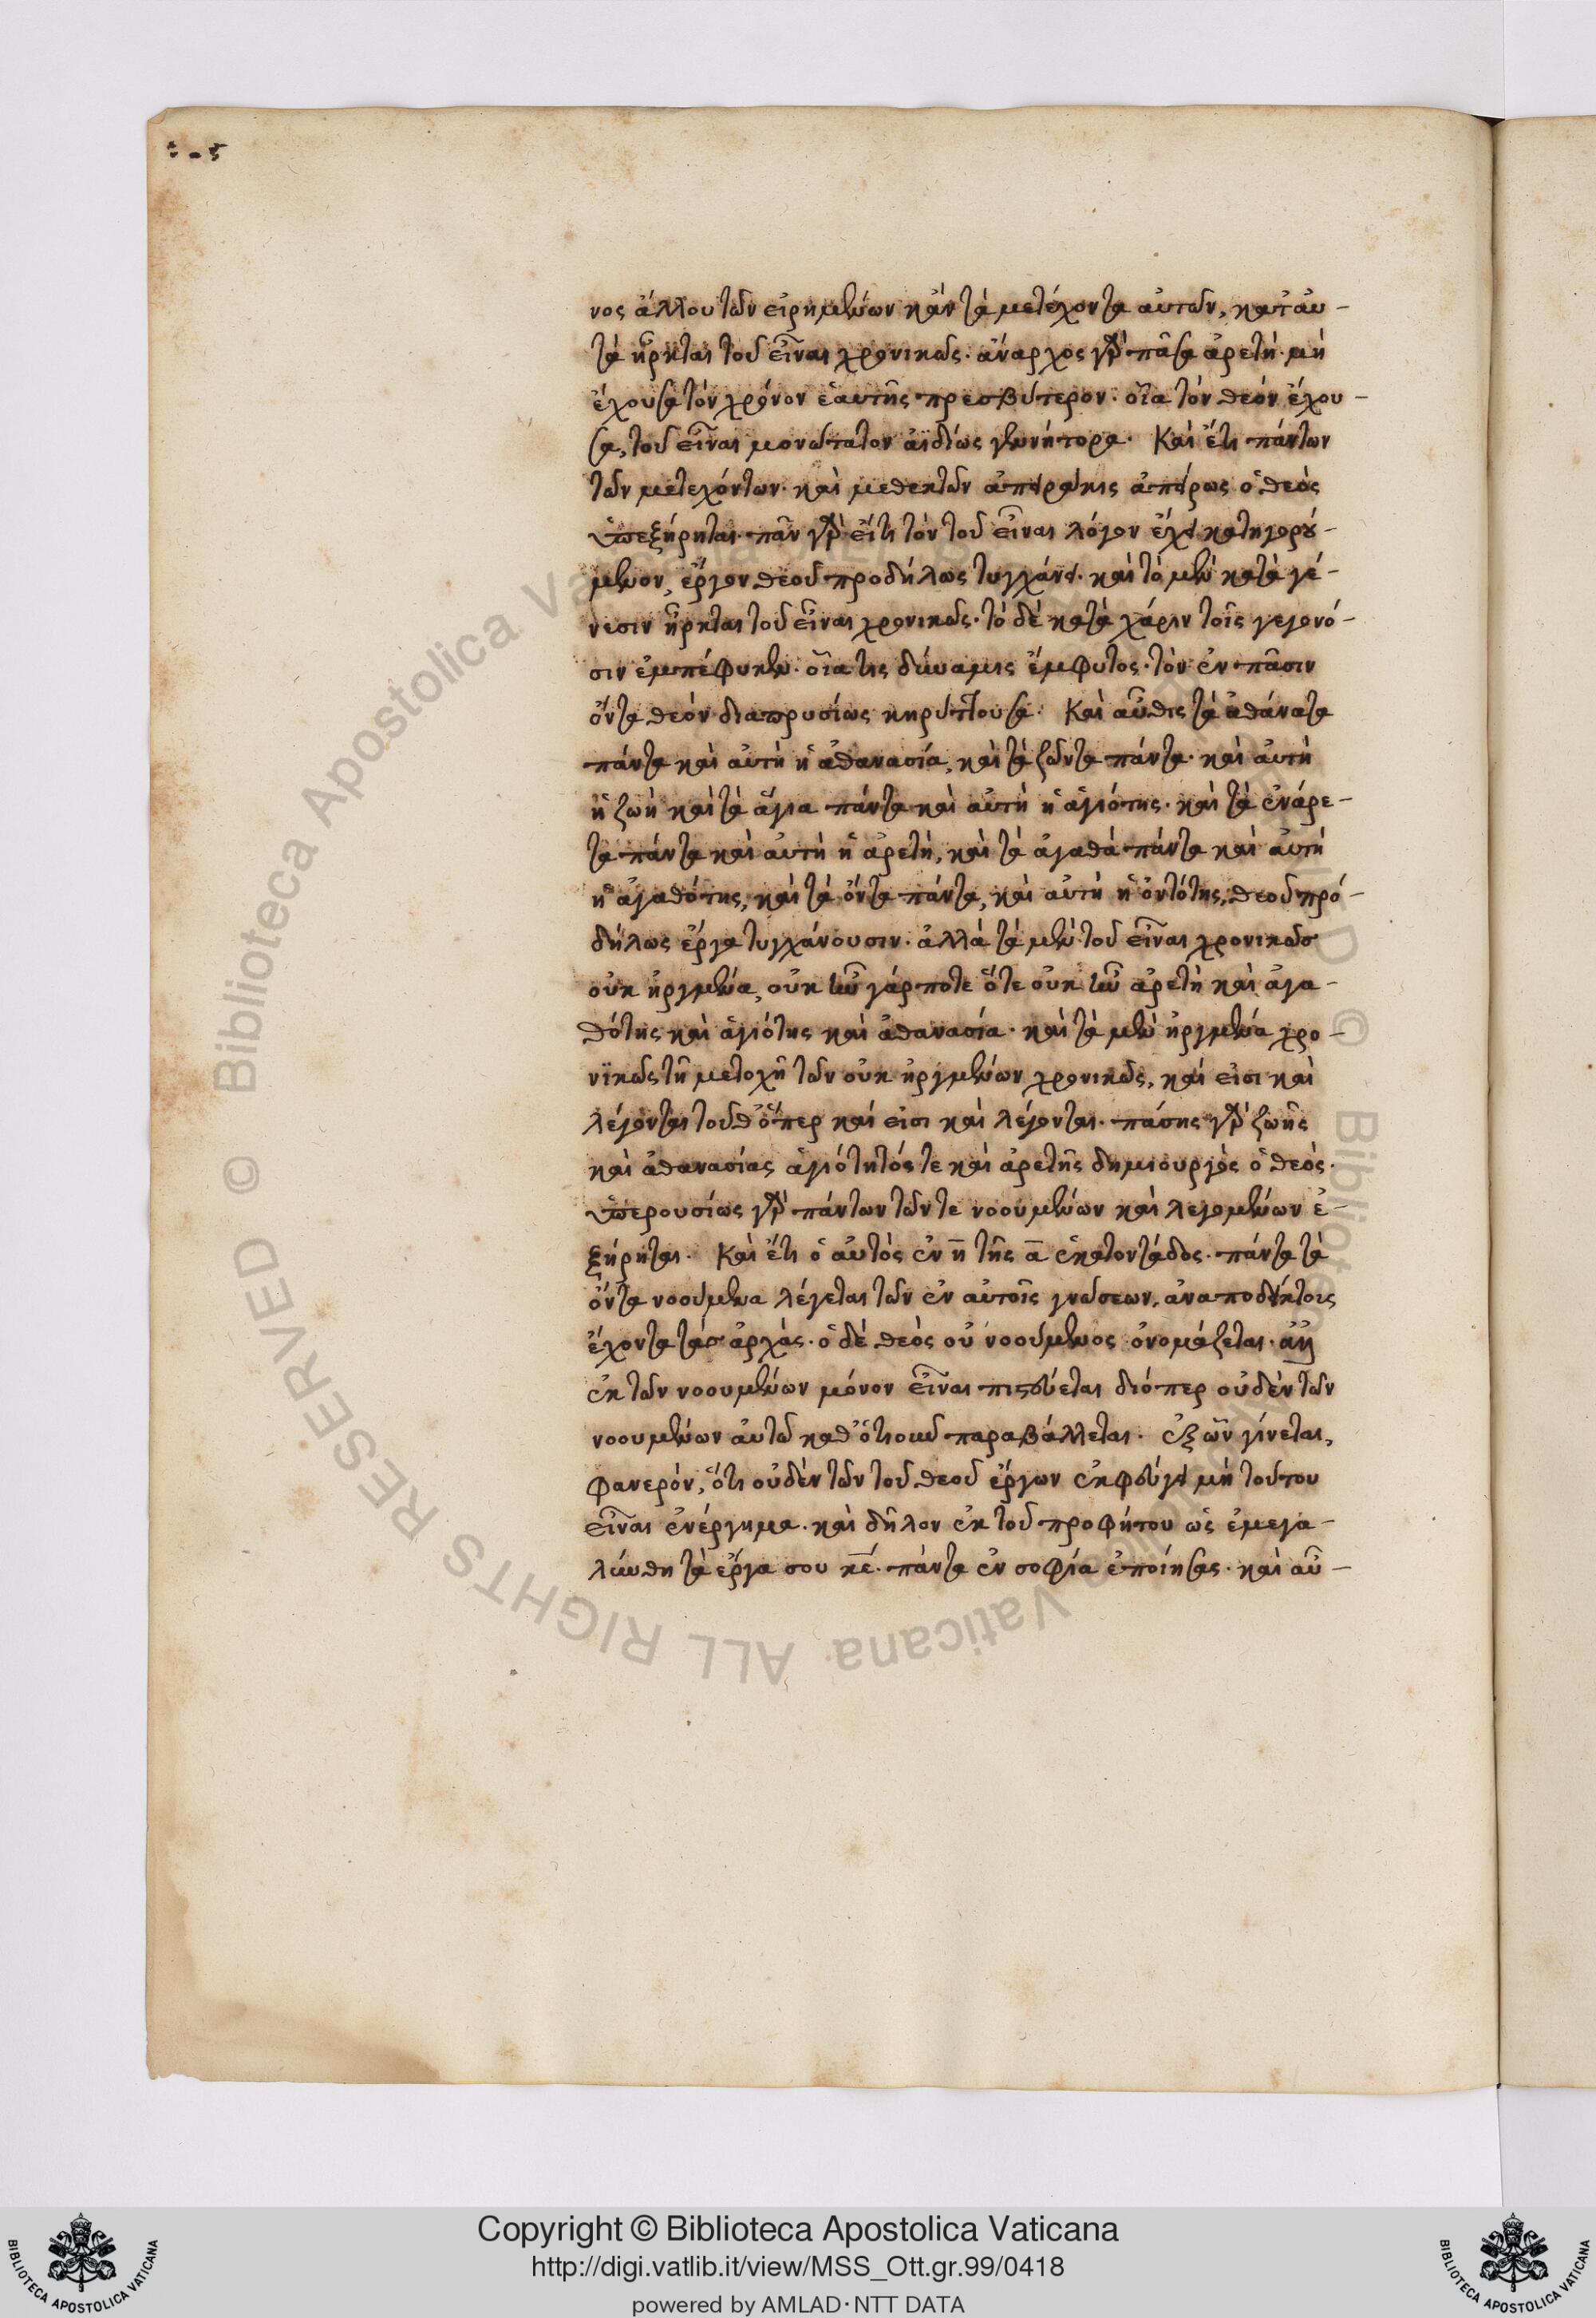 νος ἄλλου τῶν εἰρημένων κἂν τὰ μετέχοντα αὐτῶν, κατ' αὐ-
τὰ ἦρκται τοῦ εἶναι χρονικῶς. ἄναρχος γὰρ πᾶσα ἀρετή. μὴ
ἔχουσα τὸν χρόνον ἑαυτῆς πρεσβύτερον. οἷα τὸν θεὸν ἔχου-
σα, τοῦ εἶναι μονώτατον ἀϊδίως γεννήτορα. Καὶ ἔτι πάντων
τῶν μετεχόντων. καὶ μεθεκτῶν ἀπειράκις ἀπείρως ὁ θεὸς
ὑπεξήρηται. πᾶν γὰρ εἴ τι τὸν τοῦ εἶναι λόγον ἔχει κατηγορού-
μενον, ἔργον θεοῦ προδήλως τυγχάνει. καὶ τὸ μὲν κατὰ γέ-
νεσιν ἦρκται τοῦ εἶναι χρονικῶς. τὸ δὲ κατὰ χάριν τοῖς γεγονό-
σιν ἐμπέφυκεν. οἷα τις δύναμις ἔμφυτος. τὸν ἐν πᾶσιν
ὄντα θεὸν διαπρυσίως κηρύττουσα. Καὶ αὖθις τὰ ἀθάνατα
πάντα καὶ αὐτὴ ἡ ἀθανασία, καὶ τὰ ζῶντα πάντα. καὶ αὐτὴ
ἡ ζωὴ καὶ τὰ ἅγια πάντα καὶ αὐτὴ ἡ ἁγιότης. καὶ τὰ ἐνάρε-
τα πάντα καὶ αὐτὴ ἡ ἀρετή, καὶ τὰ ἀγαθὰ πάντα καὶ αὐτὴ
ἡ ἀγαθότης, καὶ τὰ ὄντα πάντα, καὶ αὐτὴ ἡ ὀντότης, θεοῦ προ-
δήλως ἔργα τυγχάνουσιν. ἀλλὰ τὰ μὲν τοῦ εἶναι χρονικῶς
οὐκ ἠργμένα, οὐκ ἦν γάρ ποτε ὅτε οὐκ ἦν ἀρετὴ καὶ ἀγα-
θότης καὶ ἁγιότης καὶ ἀθανασία. καὶ τὰ μὲν ἠργμένα χρο-
νϊκῶς τῇ μετοχῇ τῶν οὐκ ἠργμένων χρονικῶς, καί εἰσι καὶ
λέγονται τοῦθ' ὅπερ καί εἰσι καὶ λέγονται. πάσης γὰρ ζωῆς
καὶ ἀθανασίας ἁγιότητός τε καὶ ἀρετῆς δημιουργὸς ὁ θεός.
ὑπερουσίως γὰρ πάντων τῶν τε νοουμένων καὶ λεγομένων ἐ-
ξήρηται. Καὶ ἔτι ὁ αὐτὸς ἐν η̅ τῆς α̅ ἑκατοντάδος. πάντα τὰ
ὄντα νοούμενα λέγεται τῶν ἐν αὐτοῖς γνώσεων, ἀναποδείκτοις
ἔχοντα τὰς ἀρχάς. ὁ δὲ θεὸς οὐ νοούμενος ὀνομάζεται. ἀλλ'
ἐκ τῶν νοουμένων μόνον εἶναι πιστεύεται διόπερ οὐδὲν τῶν
νοουμένων αὐτῷ καθ' ὁτιοῦν παραβάλλεται. ἐξ ὧν γίνεται,
φανερόν, ὅτι οὐδὲν τῶν τοῦ θεοῦ ἔργων ἐκφεύγει μὴ τούτου
εἶναι ἐνέργημα. καὶ δῆλον ἐκ τοῦ προφήτου ὡς ἐμεγα-
λύνθη τὰ ἔργα σου κε̅. πάντα ἐν σοφίᾳ ἐποίησας. καὶ αὖ-
Copyright © Biblioteca Apostolica Vaticana
http://digi.vatlib.it/view/MSS_Ott.gr.99/0418
powered by AMLAD·NTT DATA
BIBLIOTECA APOSTOLICA VATICANA
BIBLIOTECA APOSTOLICA VATICANA
© Biblioteca Apostolica Vaticana ALL RIGHTS RESERVED